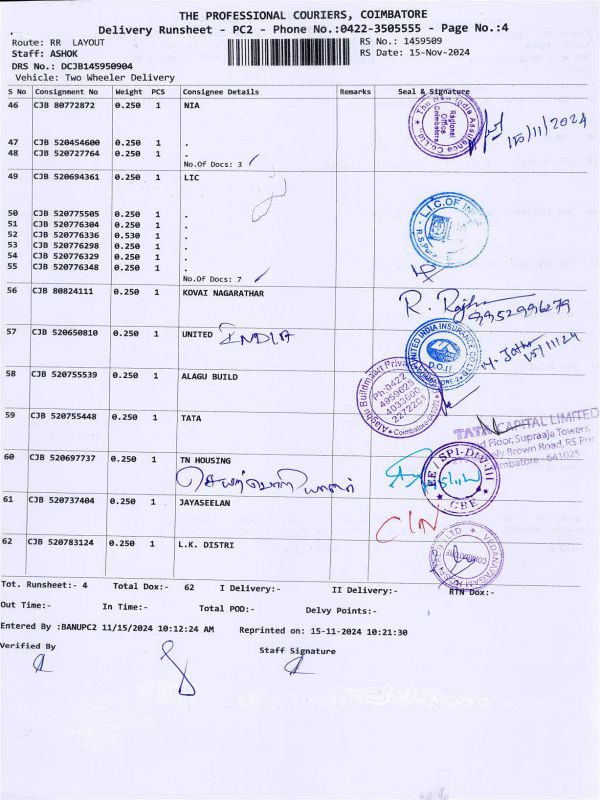 THE PROFESSIONAL COURIERS, COIMBATORE
Delivery Runsheet - PC2 - Phone No.:0422-3505555 - Page No.:4
Route: RR LAYOUT
RS No.: 1459509
Staff: ASHOK
RS Date: 15-Nov-2024
DRS No.: DCJB145950904
Vehicle: Two Wheeler Delivery
S No Consignment No Weight PCS Consignee Details Remarks Seal & Signature
46 CJB 80772872 0.250 1 NIA
The New India Assurance Co.Ltd.
Regional
Office
Coimbatore
15/11/2024
47 CJB 520454600 0.250 1 .
48 CJB 520727764 0.250 1 .
No.Of Docs: 3
49 CJB 520694361 0.250 1 LIC
L.I.C.OF INDIA
50 CJB 520775505 0.250 1 .
51 CJB 520776304 0.250 1 .
52 CJB 520776336 0.530 1 .
53 CJB 520776298 0.250 1 .
54 CJB 520776329 0.250 1 .
55 CJB 520776348 0.250 1 .
No.Of Docs: 7
56 CJB 80824111 0.250 1 KOVAI NAGARATHAR
9952996279
57 CJB 520650810 0.250 1 UNITED INDIA
UNITED INDIA INSURANCE CO.LTD.
58 CJB 520755539 0.250 1 ALAGU BUILD
Ph:0422
4959625
4033600
2272201
Coimbatore
59 CJB 520755448 0.250 1 TATA
TATA CAPITAL LIMITED
Floor, Supraaja Towers,
Brown Road, RS Pur
Coimbatore - 641025
60 CJB 520697737 0.250 1 TN HOUSING
EE / SPI-DIV-III
CBE
61 CJB 520737404 0.250 1 JAYASEELAN
62 CJB 520783124 0.250 1 L.K. DISTRI
Tot. Runsheet:- 4 Total Dox:- 62 I Delivery:- II Delivery:- RTN Dox:-
Out Time:- In Time:- Total POD:- Delvy Points:-
Entered By :BANUPC2 11/15/2024 10:12:24 AM Reprinted on: 15-11-2024 10:21:30
Verified By Staff Signature